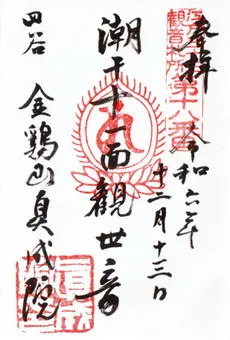 奉拝
江戸
観音札所第十八番
令和六年
十二月十三日
潮干十一面観世音
四谷
金鶏山真成院